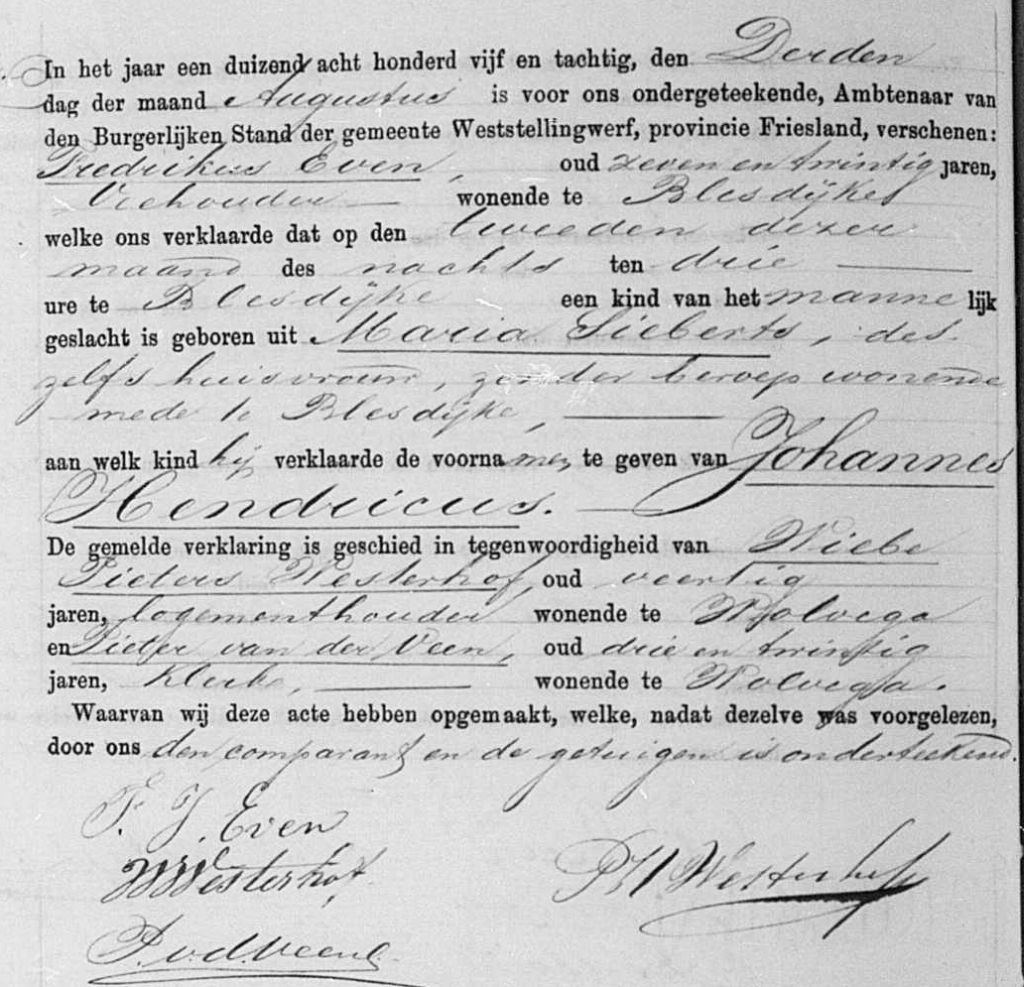 In het jaar een duizend acht honderd vijf en tachtig, den Derden
dag der maand Augustus is voor ons ondergeteekende, Ambtenaar van
den Burgerlijken Stand der gemeente Weststellingwerf, provincie Friesland, verschenen:
Fredrikus Even, oud zeven en twintig jaren,
Veehouder wonende te Blesdijke
welke ons verklaarde dat op den tweeden dezer
maand des nachts ten drie
ure te Blesdijke een kind van het manne lijk
geslacht is geboren uit Maria Sieberts, des
zelfs huisvrouw, zonder beroep wonende
mede te Blesdijke,
aan welk kind hij verklaarde de voorna men te geven van Johannes
Hendricus.
De gemelde verklaring is geschied in tegenwoordigheid van Wiebe
Pieters Westerhof, oud veertig
jaren, logementhouder wonende te Wolvega
en Pieter van der Veen, oud drie en twintig
jaren, Klerk, wonende te Wolvega.
Waarvan wij deze acte hebben opgemaakt, welke, nadat dezelve was voorgelezen,
door ons den comparant en de getuigen is onderteekend.
F. J. Even
W Westerhof P W Westerhof
P. v. d. Veen